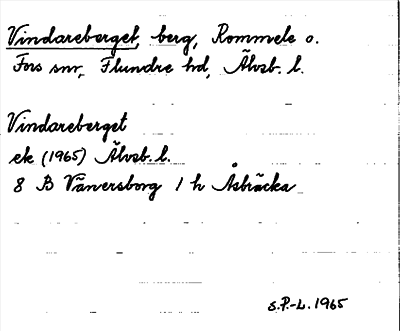 Vindareberget, berg, Rommele o.
Fors snr, Flundre hd, Älvsb. l.
Vindareberget
ek (1965) Älvsb. l.
8 B Vänersborg 1 h Åsbräcka
S.P.-L. 1965